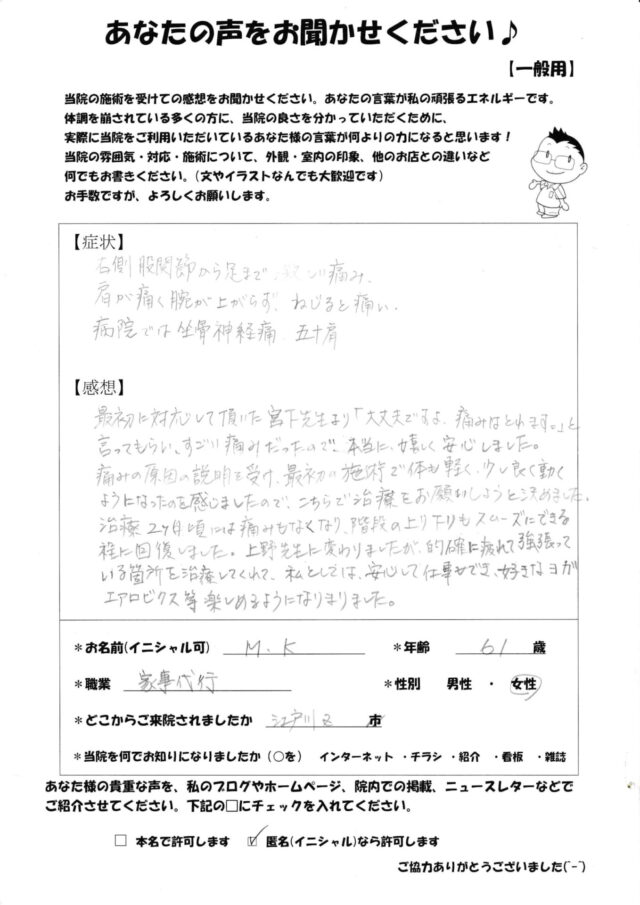 あなたの声をお聞かせください♪
【一般用】
当院の施術を受けての感想をお聞かせください。あなたの言葉が私の頑張るエネルギーです。
体調を崩されている多くの方に、当院の良さを分かっていただくために、
実際に当院をご利用いただいているあなた様の言葉が何よりの力になると思います！
当院の雰囲気・対応・施術について、外観・室内の印象、他のお店との違いなど
何でもお書きください。（文やイラストなんでも大歓迎です）
お手数ですが、よろしくお願いします。
【症状】
右側股関節から足まで、激しい痛み、
肩が痛く腕が上がらず、ねじると痛い、
病院では坐骨神経痛、五十肩
【感想】
最初に対応して頂いた宮下先生より「大丈夫ですよ、痛みはとれます。」と
言ってもらい、すごい痛みだったので、本当に、嬉しく安心しました。
痛みの原因の説明を受け、最初の施術で体も軽く、少し良く動く
ようになったのを感じましたので、こちらで治療をお願いしようと決めました。
治療2ヶ月頃には痛みもなくなり、階段の上り下りもスムーズにできる
程に回復しました。上野先生に変わりましたが、的確に疲れて強張って
いる箇所を治療してくれて、私としては、安心して仕事もでき、好きなヨガ
エアロビクス等楽しめるようになりまりました。
*お名前(イニシャル可) M.K *年齢 61 歳
*職業 家事代行 *性別 男性 ・ 女性
*どこからご来院されましたか 江戸川区 市
*当院を何でお知りになりましたか（○を） インターネット ・チラシ ・紹介 ・看板 ・雑誌
あなた様の貴重な声を、私のブログやホームページ、院内での掲載、ニュースレターなどで
ご紹介させてください。下記の□にチェックを入れてください。
□ 本名で許可します ☑ 匿名(イニシャル)なら許可します
ご協力ありがとうございました(^-^)